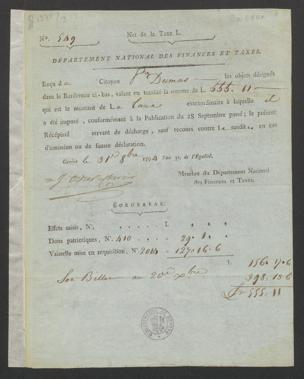 N°. 549 Net de la Taxe L.
DÉPARTEMENT NATIONAL DES FINANCES ET TAXES.
Reçu du Citoyen Dumas les objets désignés
dans le Bordereau ci-bas, valant en totalité la somme de L. 555. 11
qui est le montant de La Taxe extraordinaire à laquelle il
a été imposé, conformément à la Publication du 28 Septembre passé; le présent
Récépissé servant de décharge, sauf recours contre la susdite, en cas
d'omission ou de fausse déclaration.
Genève le 31 8bre 1794 l'an 3e. de l'Égalité.
Membre du Département National
des Finances et Taxes.
BORDEREAU.
Effets saisis, N°. L.
Dons patriotiques, N°. 410 29. 1.
Vaisselle mise en requisition, N°. 2014 127. 16. 6
156. 17. 6
Son Billet au 20 Xbre 398. 13. 6
555. 11